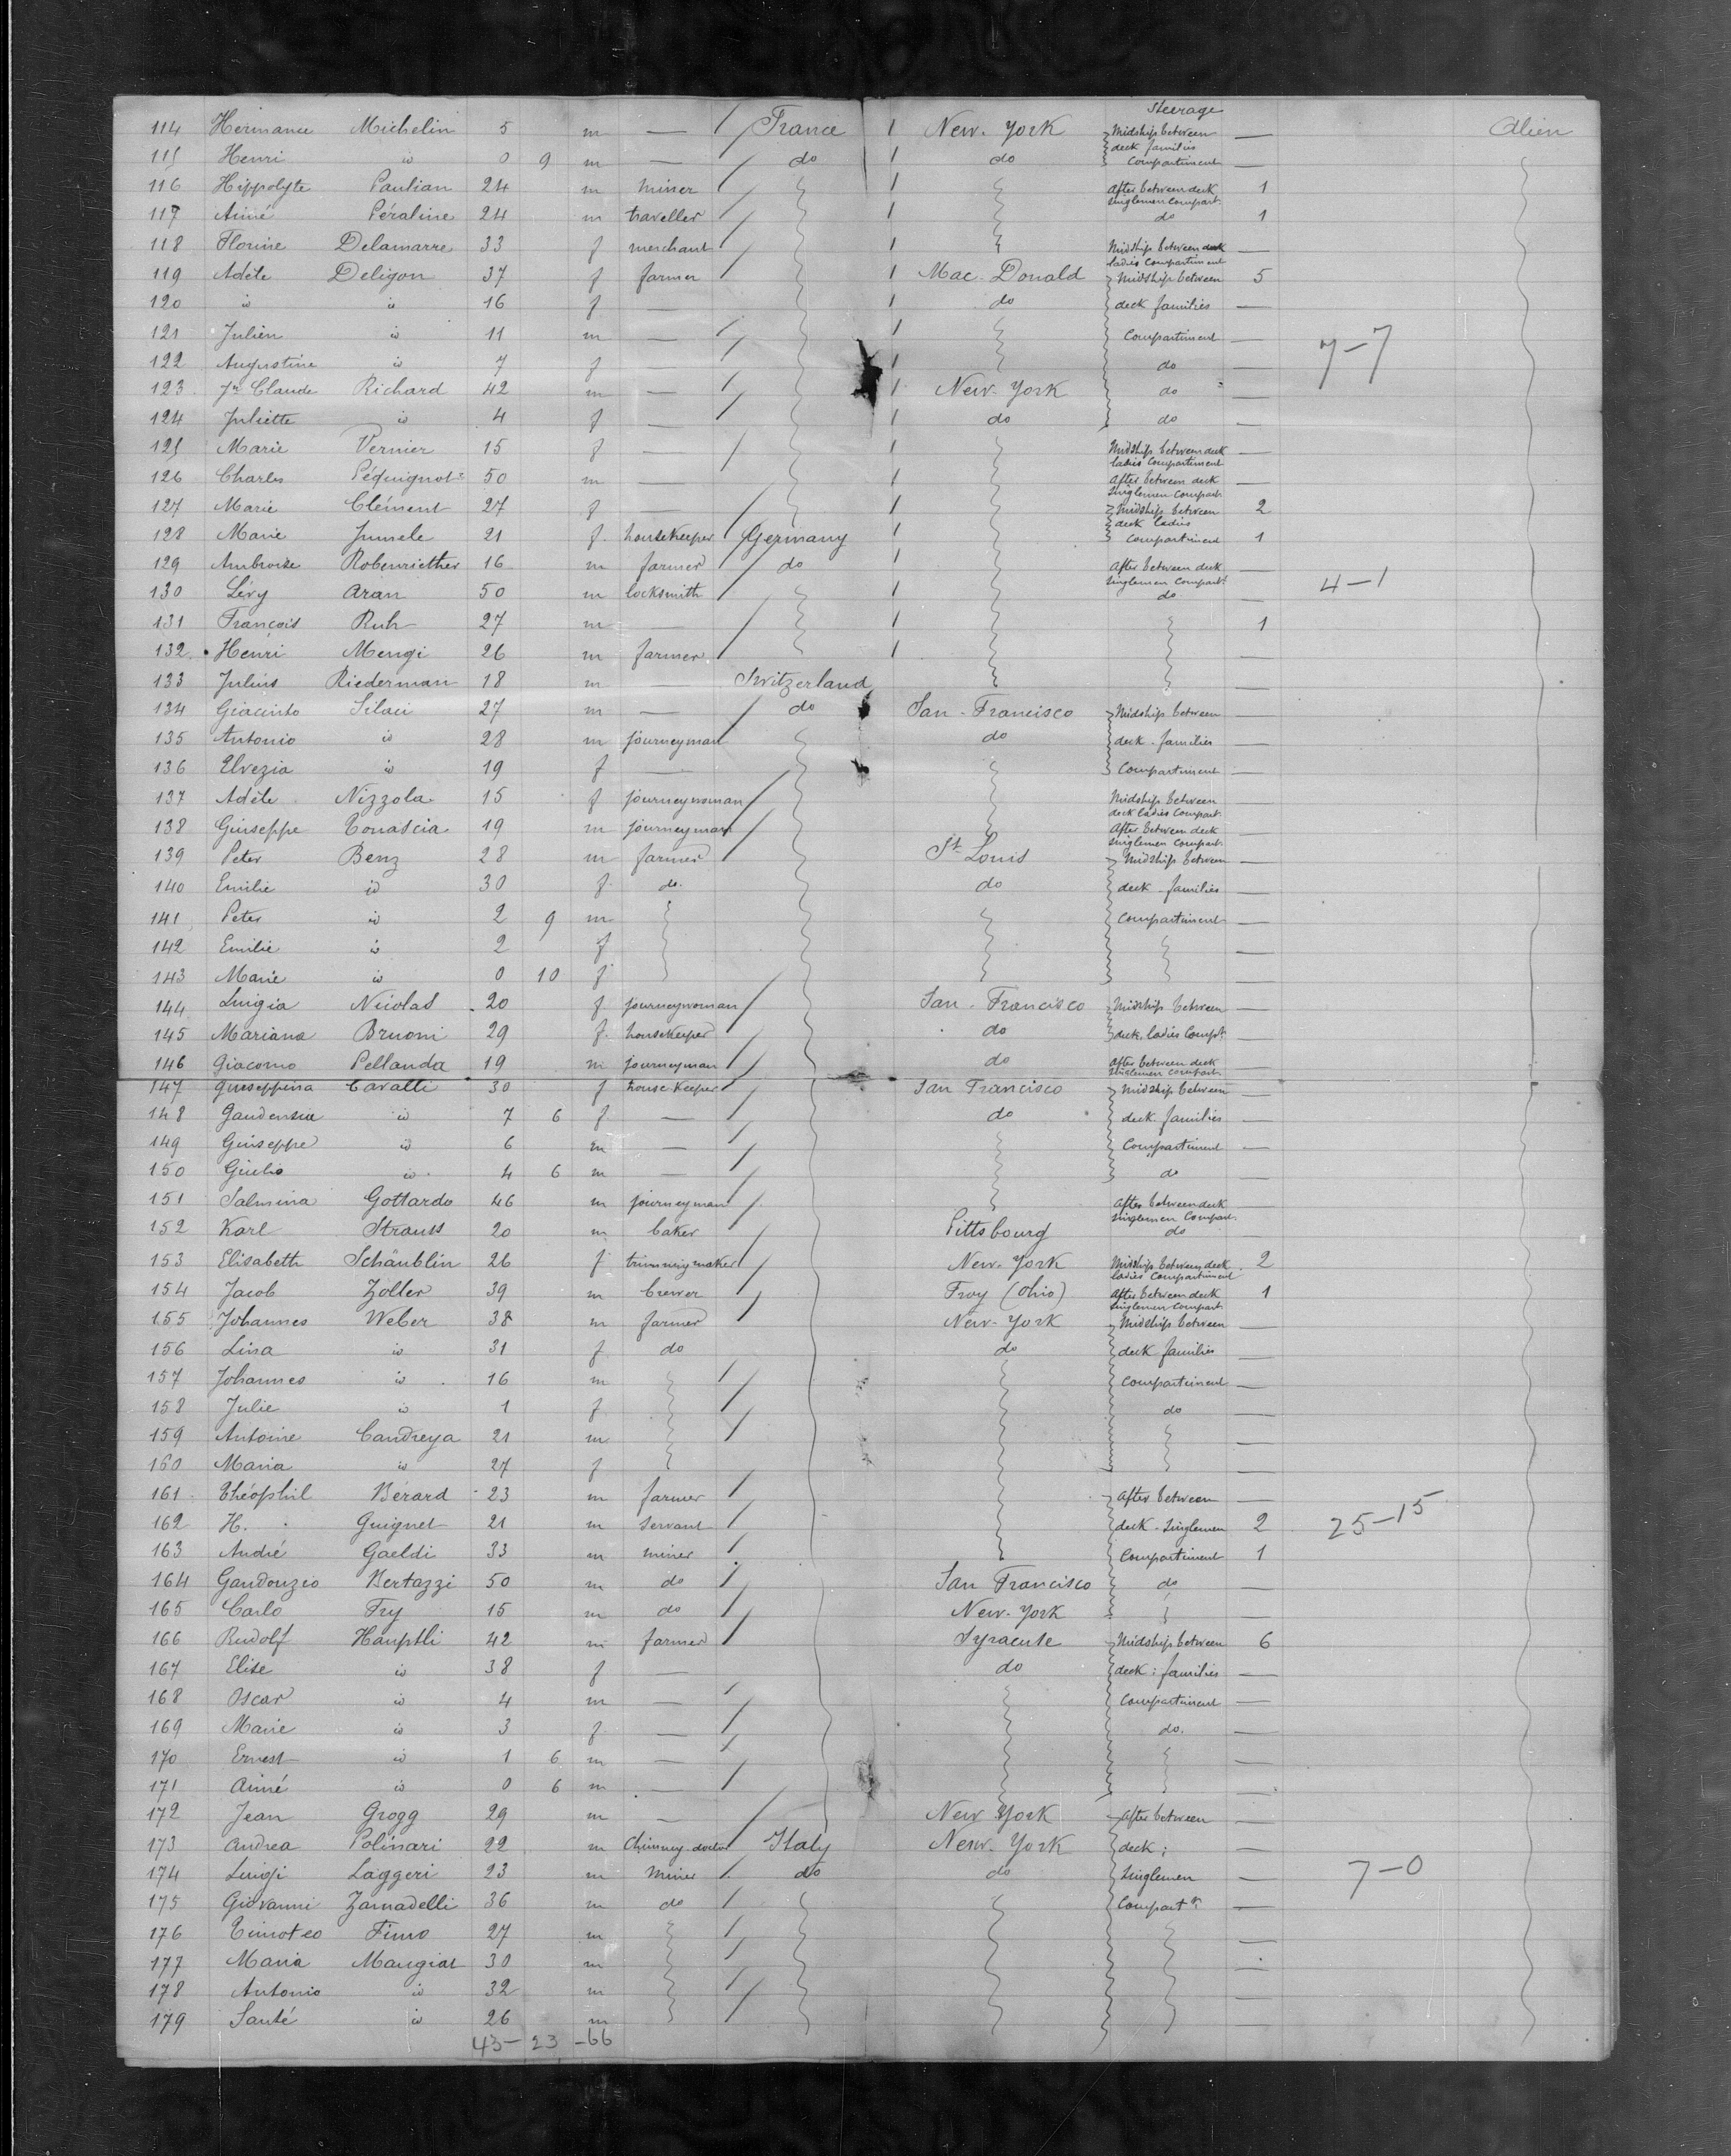 Steerage
114 Hermance Michelin 5 m — France 1 New-York Midship between — Alien
deck families
115 Henri id 0 9 m — do 1 do Compartiment —
116 Hippolyte Paulian 24 m miner 1 After between deck 1
singlemen compart.
117 Aimé Péraline 24 m traveller 1 do 1
118 Florine Delamarre 33 f merchant 1 Midship between deck —
ladies compartiment
119 Adèle Deligon 37 f farmer 1 Mac-Donald Midship between 5
120 id id 16 f — 1 do deck families —
121 Julien id 11 m — 1 Compartiment — 7-7
122 Augustine id 7 f — 1 do —
123 Jn Claude Richard 42 m — 1 New-York do —
124 Juliette id 4 f — 1 do do —
125 Marie Vernier 15 f — 1 Midship between deck —
ladies Compartiment
126 Charles Péquignot 50 m — 1 After between deck —
singlemen compart.
127 Marie Clément 27 f — 1 Midship between 2
deck ladies
128 Marie Jumele 21 f. housekeeper Germany 1 Compartiment 1
129 Ambroise Robenriether 16 m farmer do 1 After between deck —
singlemen Compart.
130 Lévy Aran 50 m locksmith 1 do — 4-1
131 François Ruh 27 m — 1 1
132 Henri Mengi 26 m farmer 1 —
133 Julius Riederman 18 m — Switzerland —
134 Giacinto Silaci 27 m — do San-Francisco Midship between —
135 Antonio id 28 m journeyman do deck families —
136 Elvezia id 19 f — Compartiment —
137 Adèle Nizzola 15 f journeywoman Midship between —
deck ladies Compart.
138 Giuseppe Tonascia 19 m journeyman After between deck —
singlemen compart.
139 Peter Benz 28 m farmer St Louis Midship between —
140 Emilie id 30 f do. do deck families —
141 Peter id 2 9 m Compartiment —
142 Emilie id 2 f —
143 Marie id 0 10 f —
144 Luigia Nicolas 20 f journeywoman San-Francisco Midship between —
145 Mariana Bruoni 29 f. housekeeper do deck. ladies Compt
146 Giacomo Pellanda 19 m journeyman do After between deck —
singlemen compart.
147 Guiseppina Cavalli 30 f housekeeper San Francisco Midship between —
148 Gaudensia id 7 6 f — do deck families —
149 Guiseppe id 6 m — Compartiment —
150 Giulio id 4 6 m — do —
151 Salmina Gottardo 46 m journeyman After between deck —
singlemen Compart.
152 Karl Strauss 20 m baker Pittsbourg do —
153 Elisabeth Schäublin 26 f trimming maker New-York Midship between deck 2
ladies Compartiment
154 Jacob Zoller 39 m brewer Troy (Ohio) After between deck 1
singlemen Compart.
155 Johannes Weber 38 m farmer New-York Midship between —
156 Lina id 31 f do do deck families —
157 Johannes id 16 m Compartiment —
158 Julie id 1 f do —
159 Antoine Candreya 21 m —
160 Maria id 27 f —
161 Théophil Bérard 23 m farmer After between —
162 H. Guignet 21 m servant deck-singlemen 2 25-15
163 André Gaeldi 33 m miner Compartiment 1
164 Gaudouzio Bertazzi 50 m do San Francisco do —
165 Carlo Fry 15 m do New-York —
166 Rudolf Hauptli 42 m farmer Syracuse Midship between 6
167 Elise id 38 f — do deck; families —
168 Oscar id 4 m — Compartiment —
169 Marie id 3 f — do. —
170 Ernest id 1 6 m — —
171 Aimé id 0 6 m — —
172 Jean Grogg 29 m — New York After between —
173 Andrea Polinari 22 m Chimney doctor Italy New-York deck; —
174 Luigi Laggeri 23 m miner do do Singlemen — 7-0
175 Giovanni Zamadelli 36 m do Compart. —
176 Timoteo Fimo 27 m —
177 Maria Mangiat 30 m —
178 Antonio id 32 m —
179 Santé id 26 m —
43-23-66